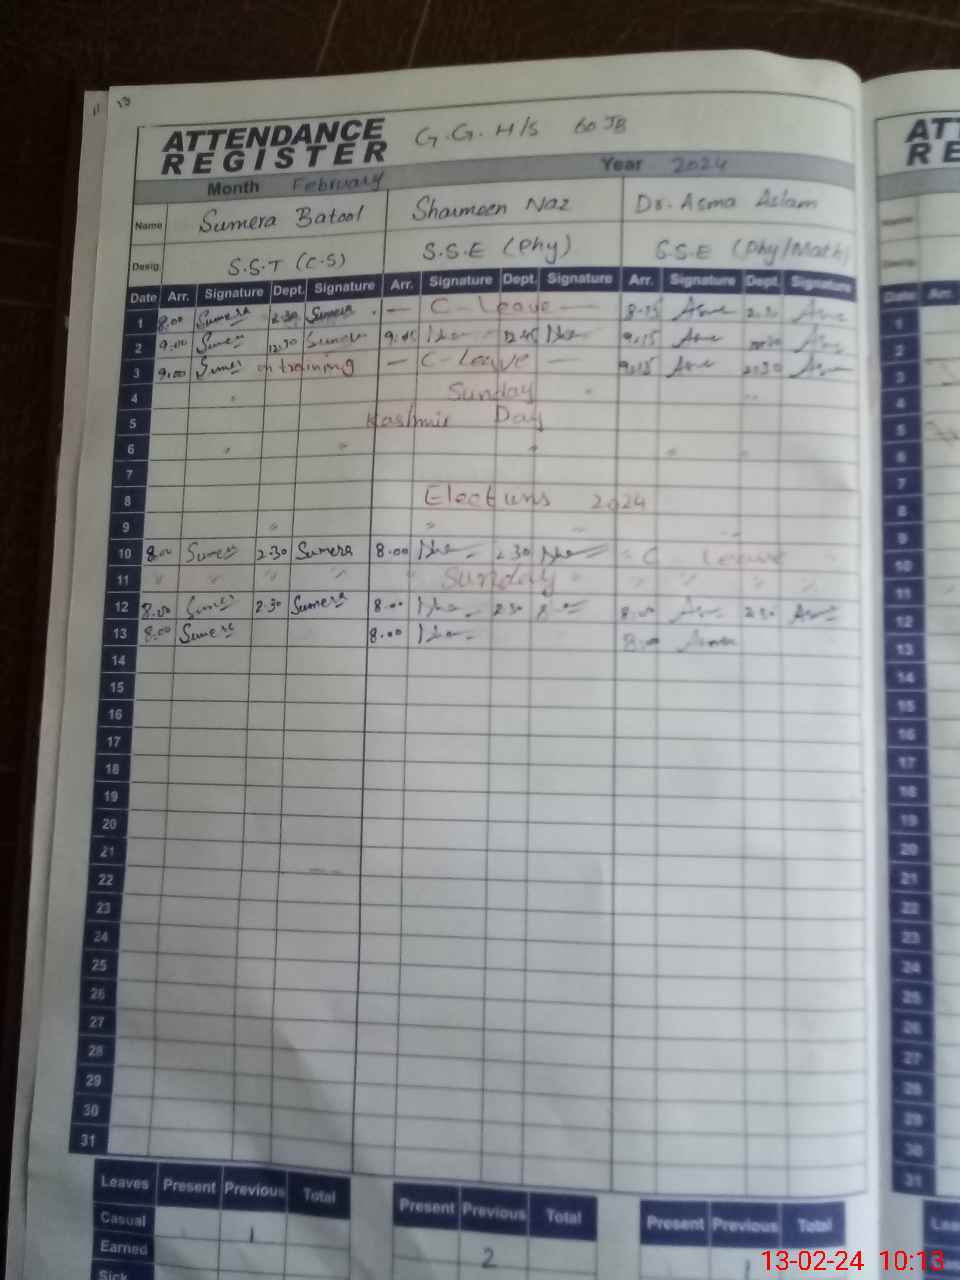 11 13
ATTENDANCE REGISTER G.G.H/S 60 JB
Month February Year 2024
Name Sumera Batool Shaumeen Naz Dr. Asma Aslam
Desig. S.S.T (C.S) S.S.E (Phy) S.S.E (Phy/Math)
Date Arr. Signature Dept. Signature Arr. Signature Dept. Signature Arr. Signature Dept. Signature
1 8.00 Sumera 2.30 Sumera — C-Leave — 8.15 Asma 2.30 Asma
2 9.00 Sumera 12.30 Sumera 9.15 Asma
3 9.00 Sumera on training — C-Leave — 9.15 Asma 2.30 Asma
4 Sunday
5 Kashmir Day
6
7
8 Elections 2024
9
10 8.00 Sumera 2.30 Sumera 8.00 2.30 C Leave
11 " " " " " Sunday " " " " "
12 8.00 Sumera 2.30 Sumera 8.00 2.30 8.00 Asma 2.30 Asma
13 8.00 Sumera 8.00 8.00 Asma
14
15
16
17
18
19
20
21
22
23
24
25
26
27
28
29
30
31
Leaves Present Previous Total Present Previous Total Present Previous Total
Casual 1 1
Earned 2
Sick
13-02-24 10:13
ATT
RE
Date Arr.
1
2
3
4
5
6
7
8
9
10
11
12
13
14
15
16
17
18
19
20
21
22
23
24
25
26
27
28
29
30
31
Lea